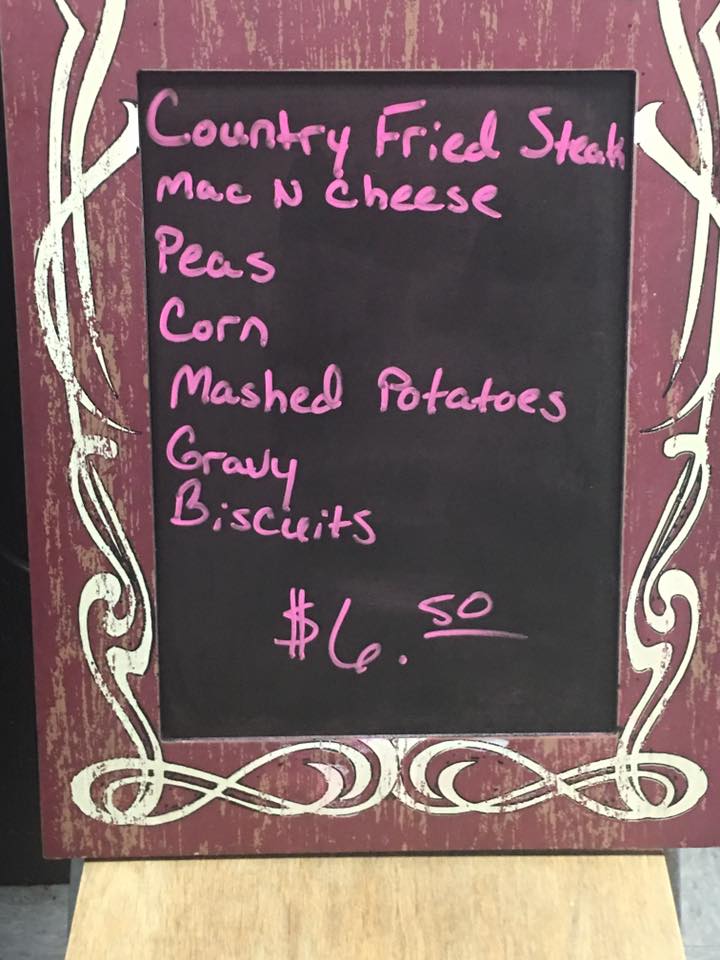 Country Fried Steak
Mac N Cheese
Peas
Corn
Mashed Potatoes
Gravy
Biscuits
$6.50